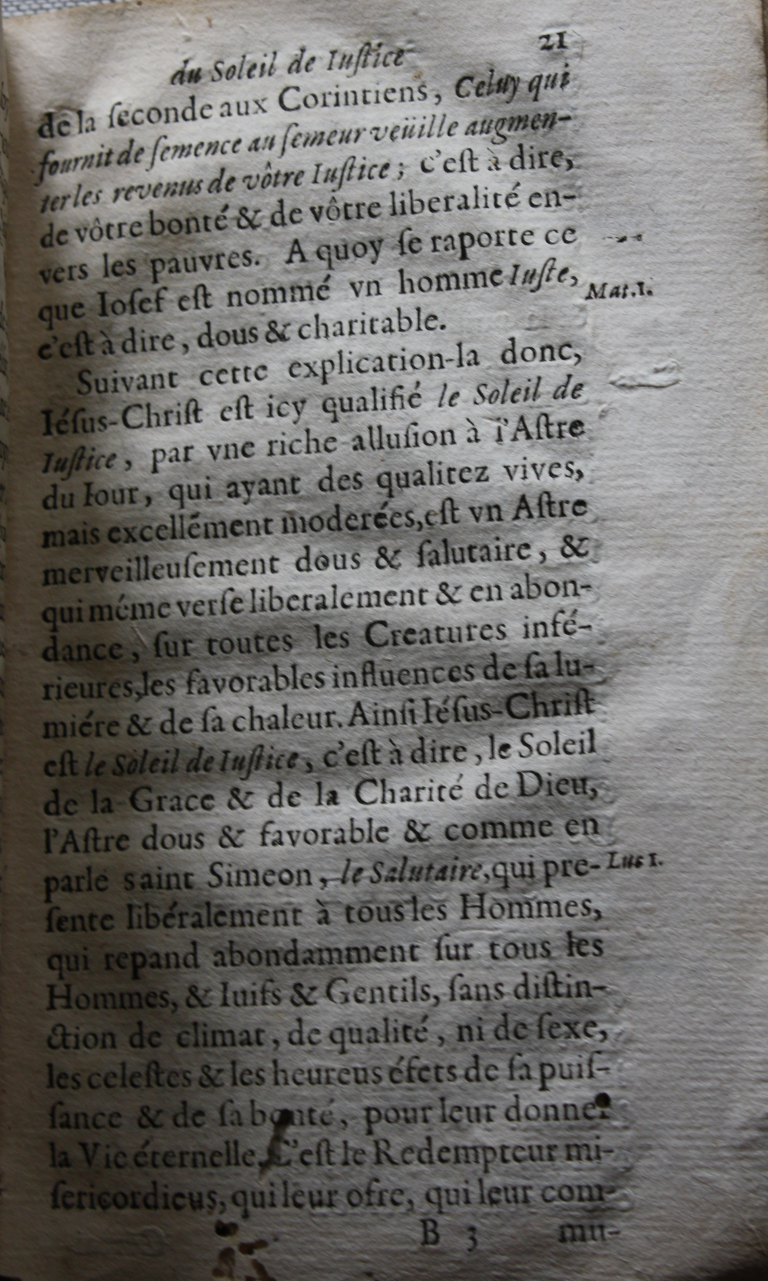 du Soleil de Iuſtice 21
de la ſeconde aux Corintiens, Celuy qui
fournit de ſemence au ſemeur veüille augmen-
ter les revenus de vôtre Iuſtice; c'eſt à dire,
de vôtre bonté & de vôtre liberalité en-
vers les pauvres. A quoy ſe raporte ce
que Ioſef eſt nommé vn homme Iuſte, Mat. 1.
c'eſt à dire, dous & charitable.
Suivant cette explication-la donc,
Iéſus-Chriſt eſt icy qualifié le Soleil de
Iuſtice, par vne riche alluſion à l'Aſtre
du Iour, qui ayant des qualitez vives,
mais excellément moderées, eſt vn Aſtre
merveilleuſement dous & ſalutaire, &
qui méme verſe liberalement & en abon-
dance, ſur toutes les Creatures infé-
rieures, les favorables influences de ſa lu-
miére & de ſa chaleur. Ainſi Iéſus-Chriſt
eſt le Soleil de Iuſtice, c'eſt à dire, le Soleil
de la Grace & de la Charité de Dieu,
l'Aſtre dous & favorable & comme en
parle saint Simeon, le Salutaire, qui pre- Luc 1.
ſente libéralement à tous les Hommes,
qui repand abondamment ſur tous les
Hommes, & Iuifs & Gentils, ſans diſtin-
ction de climat, de qualité, ni de ſexe,
les celeſtes & les heureus éfets de ſa puiſ-
ſance & de ſa bonté, pour leur donner
la Vie éternelle. C'eſt le Redempteur mi-
ſericordieus, qui leur ofre, qui leur com-
B 3 mu-